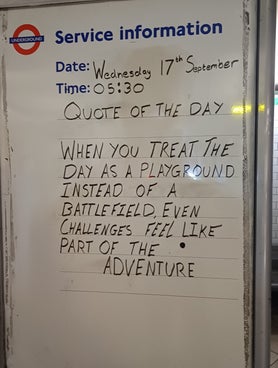 UNDERGROUND
Service information
Date: Wednesday 17th September
Time: 05:30
QUOTE OF THE DAY
WHEN YOU TREAT THE
DAY AS A PLAYGROUND
INSTEAD OF A
BATTLEFIELD, EVEN
CHALLENGES FEEL LIKE
PART OF THE
ADVENTURE